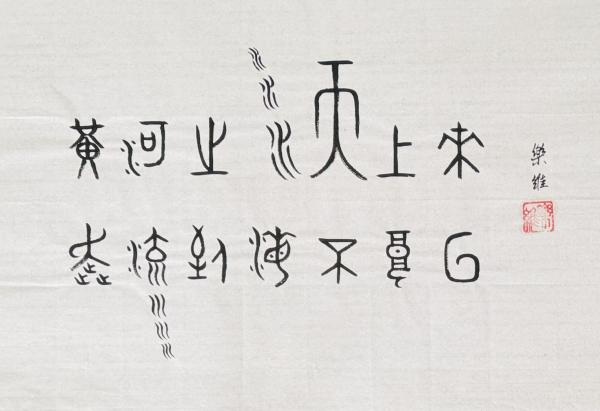 黄河之水天上來
奔流到海不复回
樂維